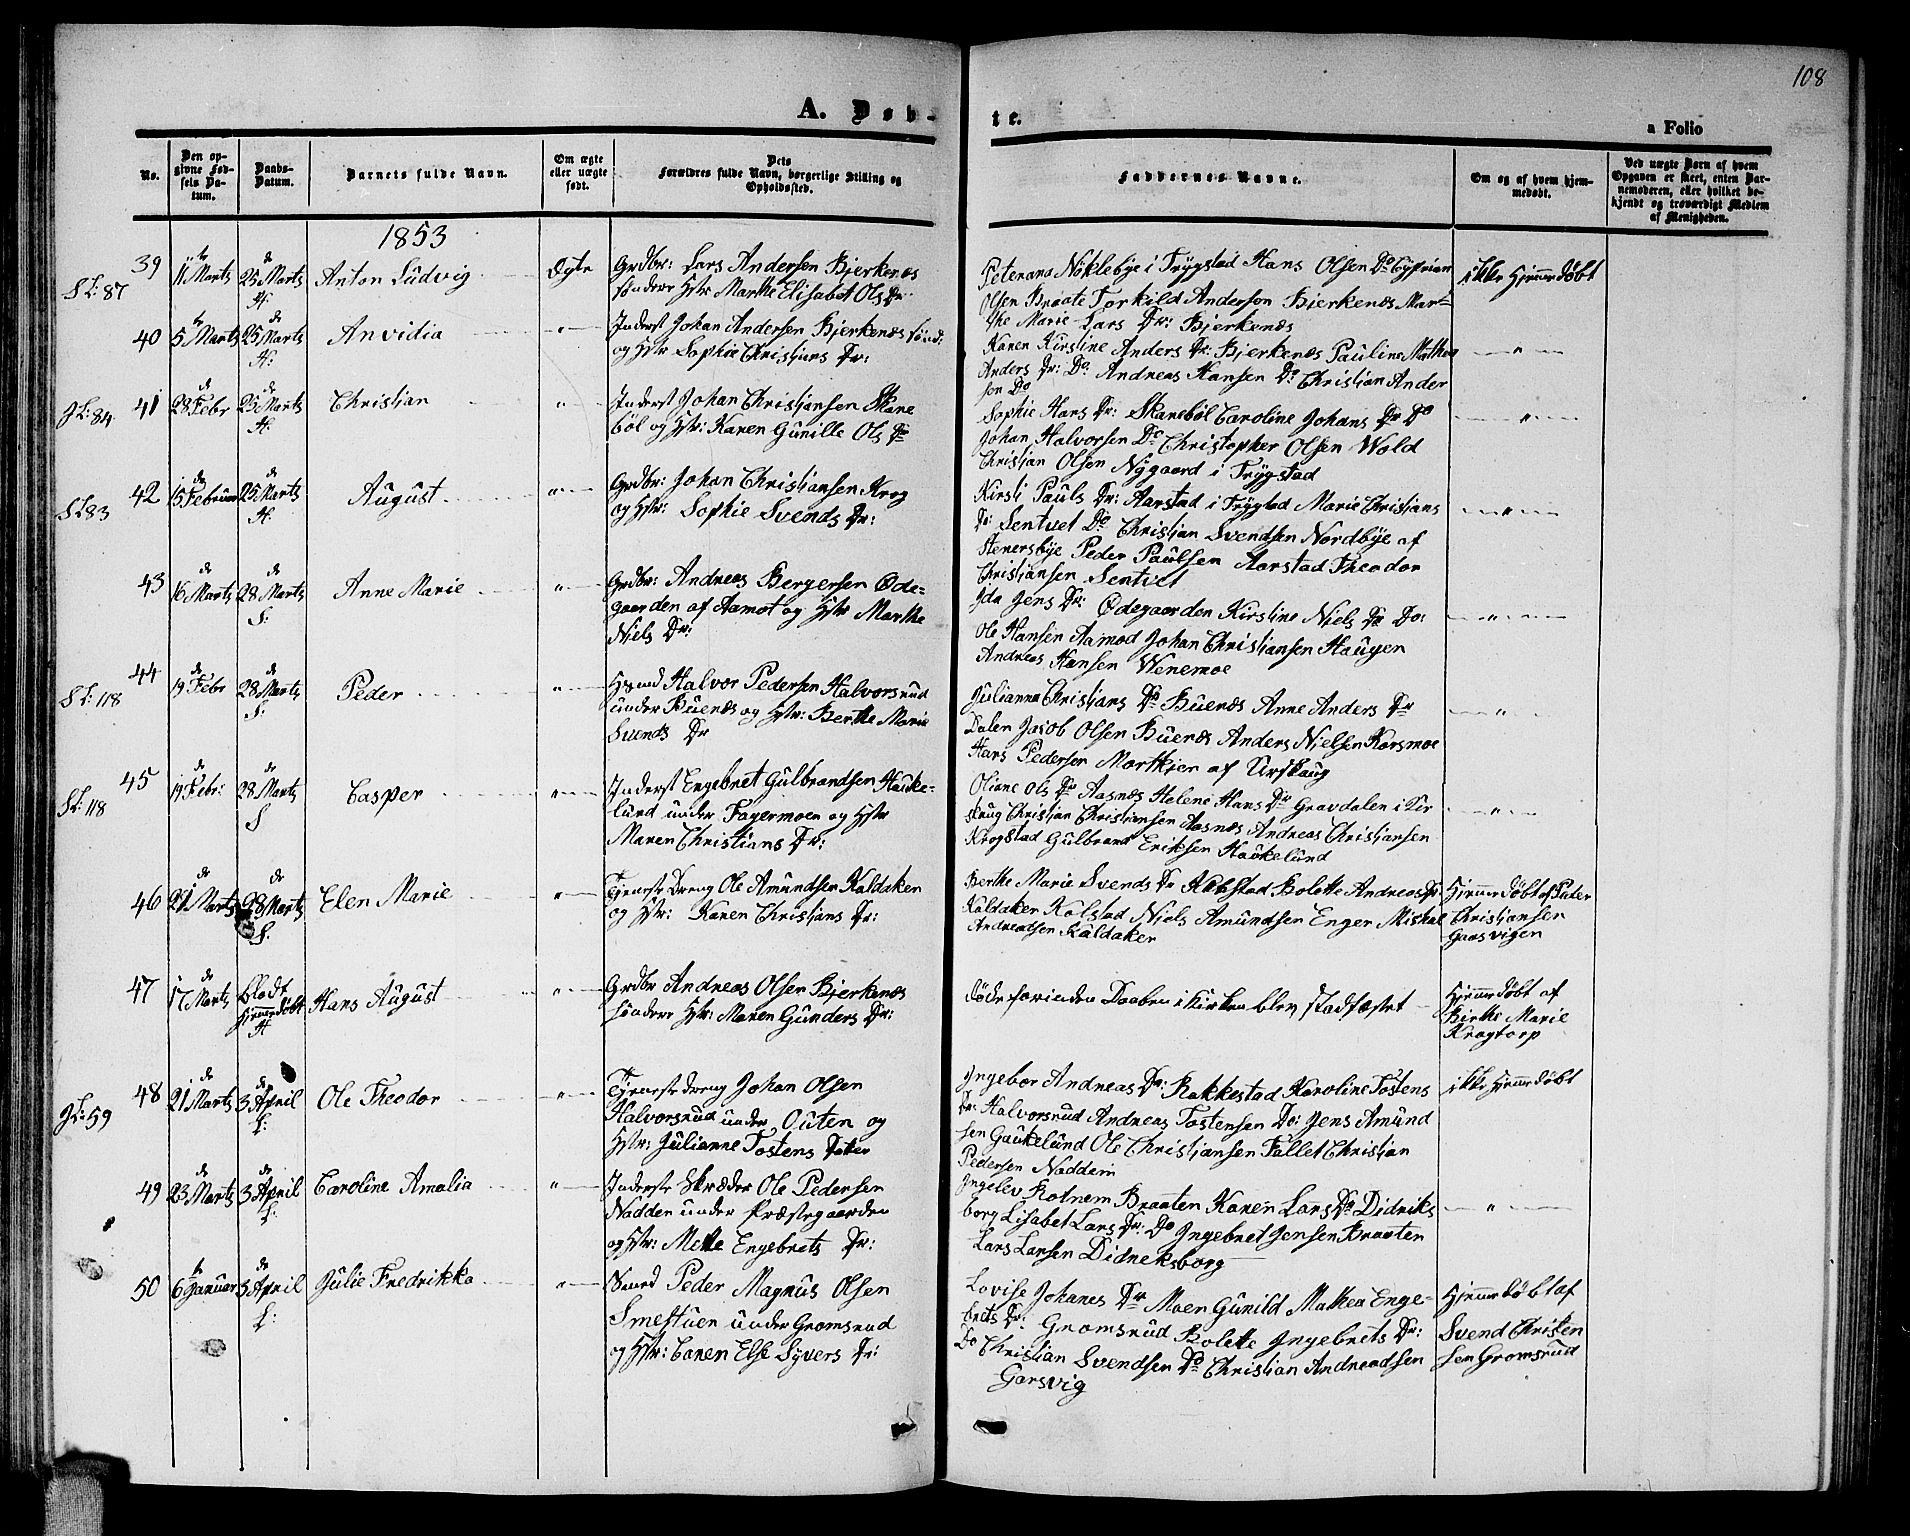 108
A. Døb-
te.
a Folio
No.
Den op-
givne Fød-
sels Da-
tum.
Daabs-
Datum.
Barnets fulde Navn.
Om ægte
eller uægte
født.
Dets
Forældres fulde Navn, borgerlige Stilling og
Opholdssted.
Faddernes Navne.
Om og af hvem hjem-
medøbt.
Ved uægte Børn af hvem
Opgaven er skeet, enten Bar-
nemoderen, eller hvilket be-
kjendt og troværdigt Medlem
af Menigheden.
1853
39
11 Marts
25 Marts
Anton Ludvig
Ægte
Grdbr: Lars Andersen Bjerkenæs
søndere Hstr Marthe Elisabet Ols Dr.
Peternna Nöklebye i Trygstad Hans Olsen Do
Olsen Braate Torkild Andersen Bjerkenæs Mar-
the Marie Lars Dr: Bjerkenæs
ikke hjemmedöbt
SL: 87
40
5 Marts
25 Marts
H:
Anvidia
Inderst Johan Andersen Bjerkenæs sönd:
og Hstr Sophie Christians Dr:
Karen Kirstine Anders Dr: Bjerkenæs Pauline Mathea
Anders Dr: Do Andreas Hansen Do Christian Ander
sen Do
41
28 Febr
25 Marts
H.
Christian
Inderst Johan Christiansen Skane
böl og Hstr: Karen Gunille Ols Dr
Sophie Hans Dr: Skaneböl Caroline Johans Dr Do
Johan Halvorsen Do Christopher Olsen Wold
Christian Olsen Nygaard i Trygstad
GL: 84
42
15 Februar
25 Marts
H.
August
Grdbr: Johan Christiansen Krog
og Hstr: Sophie Svends Dr:
Kirsti Pauls Dr: Aarstad i Trygstad Marie Christians
Dr: Sentvet Do Christian Svendsen Nordbye af
Stenersbye Peder Paulsen Aarstad Theodor
Christiansen Sentvet
SL 83
43
16 Marts
28 Marts
S:
Anne Marie
Grdbr: Andreas Bergersen Øde-
gaarden af Aamot og Hstr Marthe
Niels Dr:
Ida Jens Dr: Ødegaarden Kirstine Niels Dr Do:
Ole Hansen Aamod Johan Christiansen Haugen
Andreas Hansen Wenemoe
44
19 Febr
28 Marts
S:
Peder
Hsmd Halvor Pedersen Halvorsrud
under Buenæs og Hstr: Berthe Marie
Svends Dr
Julianna Christians Dr Buenæs Anne Anders Dr
Dalen Jacob Olsen Buenæs Anders Nielsen Korsmoe
Hans Pedersen Mortkjer af Urskaug
SL: 118
45
19 Febr:
28 Marts
S
Casper
Inderst Engebret Gulbrandsen Hauke-
lund under Fagermoen og Hstr
Maren Christians Dr:
Oliane Ols Dr Aasnæs Helene Hans Dr Gravdalen i Ur
skaug Christian Christiansen Aasnæs Andreas Christiansen
Krogstad Gulbrand Eriksen Haukelund
SL: 118
46
21 Marts
28 Marts
S:
Elen Marie
Tjeneste Dreng Ole Amundsen Kaldaker
og Hstr: Karen Christians Dr:
Berthe Marie Svends Dr Kolstad Bolette Andreas Dr:
Kaldaker Kolstad Niels Amundsen Enger Mickel
Andreassen Kaldaker
Hjemmedöbt af Peder
Christiansen
Garsvigen
47
17 Marts
blodt
hjemmedöbt
H
Hans August
Grdbr Andreas Olsen Bjerkenæs
söndere Hstr: Maren Gunders Dr:
döde forinden Daaben i Kirken blev stadfæstet
Hjemmedöbt af
Birthe Marie
Krogtorp
48
21 Marts
3 April
L:
Ole Theodor
Tjeneste dreng Johan Olsen
Halvorsrud under Outen og
Hstr: Julianne Tostens Dater
Ingebor Andreas Dr: Rakkestad Karoline Tostens
Dr: Halvorsrud Andreas Tostensen Do: Jens Amund
sen Gaukelund Ole Christiansen Fallet Christian
Pedersen Naddein
ikke hjemmedöbt
GL: 59
49
23 Marts
3 April
L:
Caroline Amalia
Inderste Skræder Ole Pedersen
Nadden under Præstegaarden
og Hstr: Mette Engebrets Dr:
Ingelev Rotnem Braaten Karen Lars Dr Didriks
borg Lisabet Lars Dr: Do Ingebret Jensen Braaten
Lars Larsen Didriksborg
50
6 Januar
3 April
L:
Julie Fredrikka
Smed Peder Magnus Olsen
Smestuen under Gromsrud
og Hstr: Caren Else Syvers Dr:
Lovise Johanes Dr Moen Gunild Mathea Enge-
brets Dr: Gromsrud Bolette Ingebrets Dr:
Do Christian Svendsen Do Christian Andreassen
Garsvig
Hjemmedöbt af
Svend Christen
sen Gromsrud